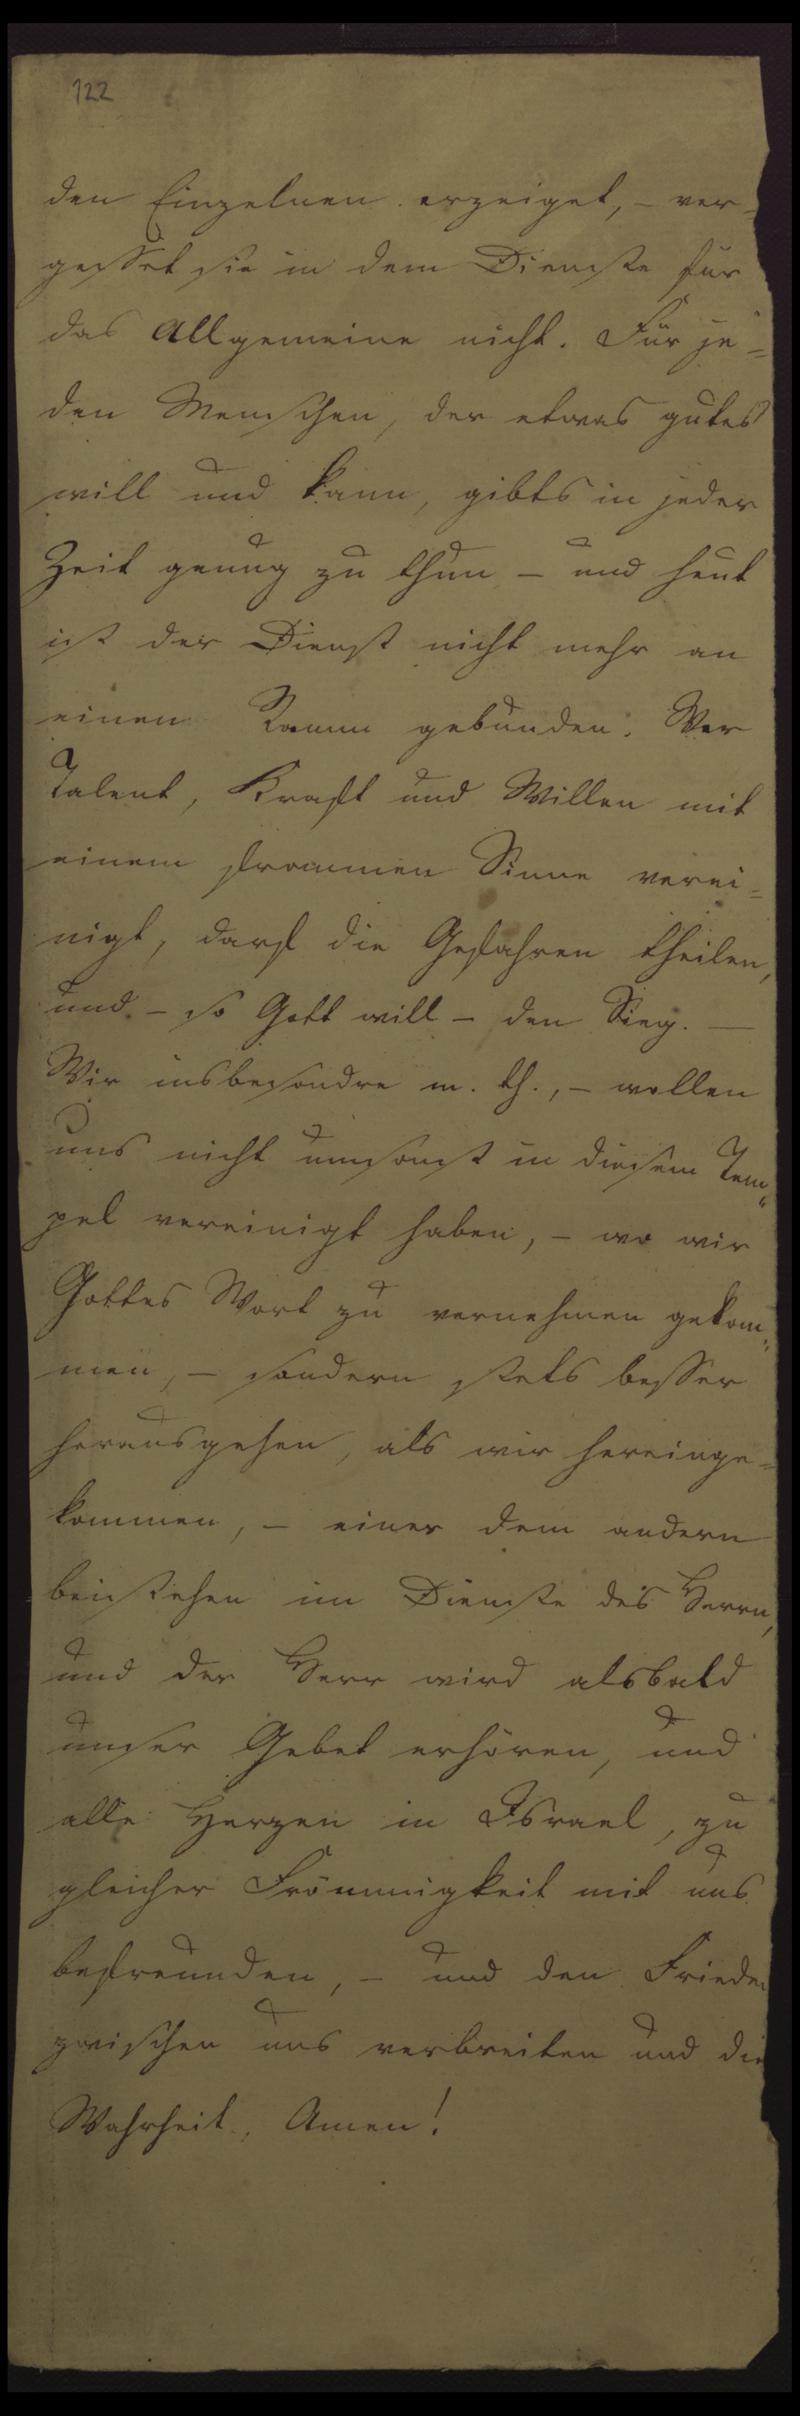 122
den Einzelnen erzeiget, – ver-
gesset sie in dem Dienste für
das Allgemeine nicht. Für je-
den Menschen, der etwas gutes
will und kann, gibts in jeder
Zeit genug zu thun – und heut
ist der Dienst nicht mehr an
einen Raum gebunden. Wer
Talent, Kraft und Willen mit
einem frommen Sinne verei-
nigt, darf die Gefahren theilen,
und – so Gott will – den Sieg. –
Wir insbesondre m. th., – wollen
uns nicht umsonst in diesem Tem-
pel vereinigt haben, – wo wir
Gottes Wort zu vernehmen gekom-
men, – sondern stets besser
herausgehen, als wir hereinge-
kommen, – einer dem andern
beistehen im Dienste des Herrn,
und der Herr wird alsbald
unser Gebet erhören, und
alle Herzen in Israel, zu
gleicher Frömmigkeit mit uns
befreunden, – und den Frieden
zwischen uns verbreiten und die
Wahrheit. Amen!